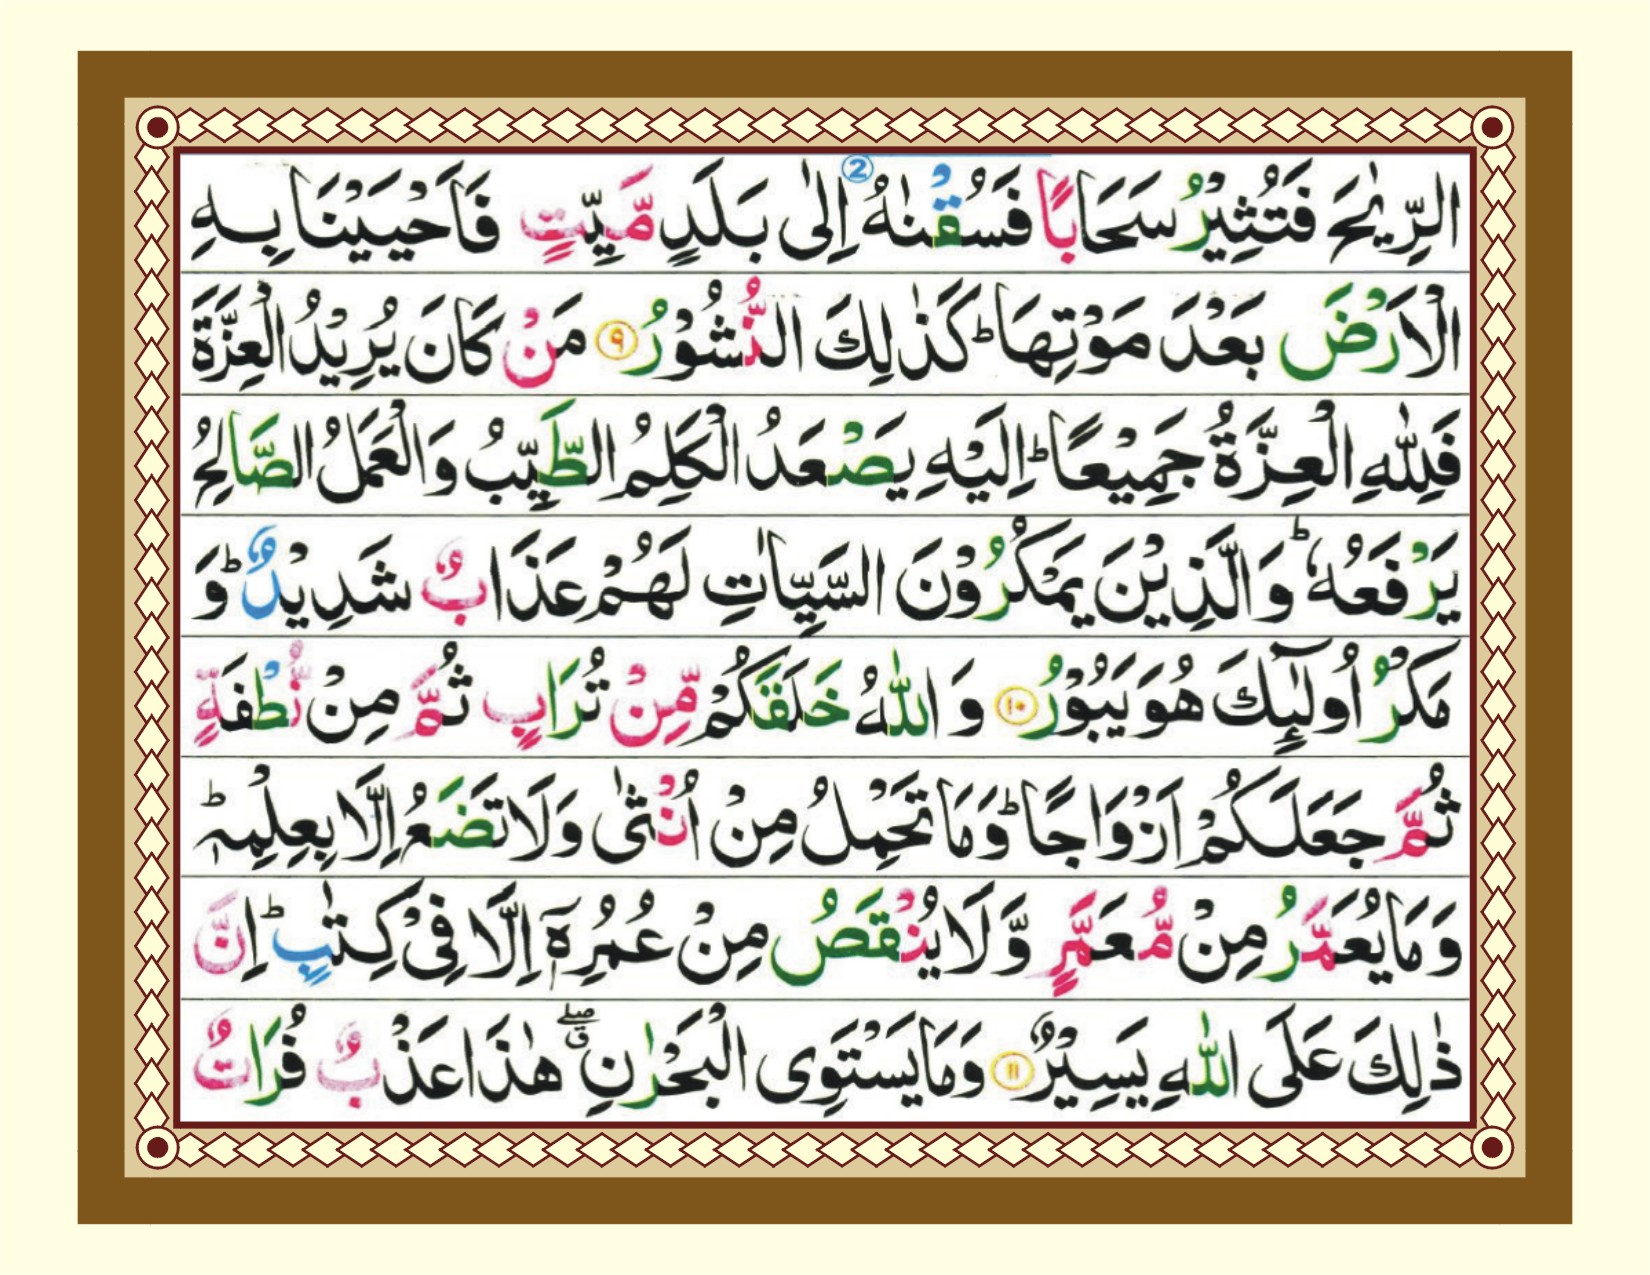 الرِّيٰحَ فَتُثِيْرُ سَحَابًا فَسُقْنٰهُ ② اِلٰى بَلَدٍ مَّيِّتٍ فَاَحْيَيْنَا بِهِ
الْاَرْضَ بَعْدَ مَوْتِهَا ؕ كَذٰلِكَ النُّشُوْرُ ۹ مَنْ كَانَ يُرِيْدُ الْعِزَّةَ
فَلِلّٰهِ الْعِزَّةُ جَمِيْعًا ؕ اِلَيْهِ يَصْعَدُ الْكَلِمُ الطَّيِّبُ وَالْعَمَلُ الصَّالِحُ
يَرْفَعُهٗ ؕ وَالَّذِيْنَ يَمْكُرُوْنَ السَّيِّاٰتِ لَهُمْ عَذَابٌ شَدِيْدٌ ؕ وَ
مَكْرُ اُولٰٓئِكَ هُوَ يَبُوْرُ ۱۰ وَ اللّٰهُ خَلَقَكُمْ مِّنْ تُرَابٍ ثُمَّ مِنْ نُّطْفَةٍ
ثُمَّ جَعَلَكُمْ اَزْوَاجًا ؕ وَمَا تَحْمِلُ مِنْ اُنْثٰى وَلَا تَضَعُ اِلَّا بِعِلْمِهٖ ؕ
وَمَا يُعَمَّرُ مِنْ مُّعَمَّرٍ وَّلَا يُنْقَصُ مِنْ عُمُرِهٖٓ اِلَّا فِيْ كِتٰبٍ ؕ اِنَّ
ذٰلِكَ عَلَى اللّٰهِ يَسِيْرٌ ۱۱ وَمَا يَسْتَوِى الْبَحْرٰنِ ۖق هٰذَا عَذْبٌ فُرَاتٌ